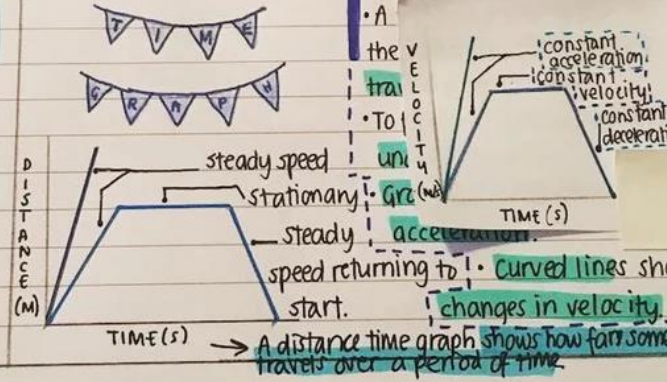 TIME
GRAPH
DISTANCE (M)
steady speed
stationary
steady
speed returning to
start.
TIME (S)
→ A distance time graph shows how far som
travels over a period of time
• A
the
• To
acceleration.
• curved lines sh
changes in velocity.
VELOCITY (m/s)
constant
acceleration
constant
velocity
constant
decelerati
TIME (S)